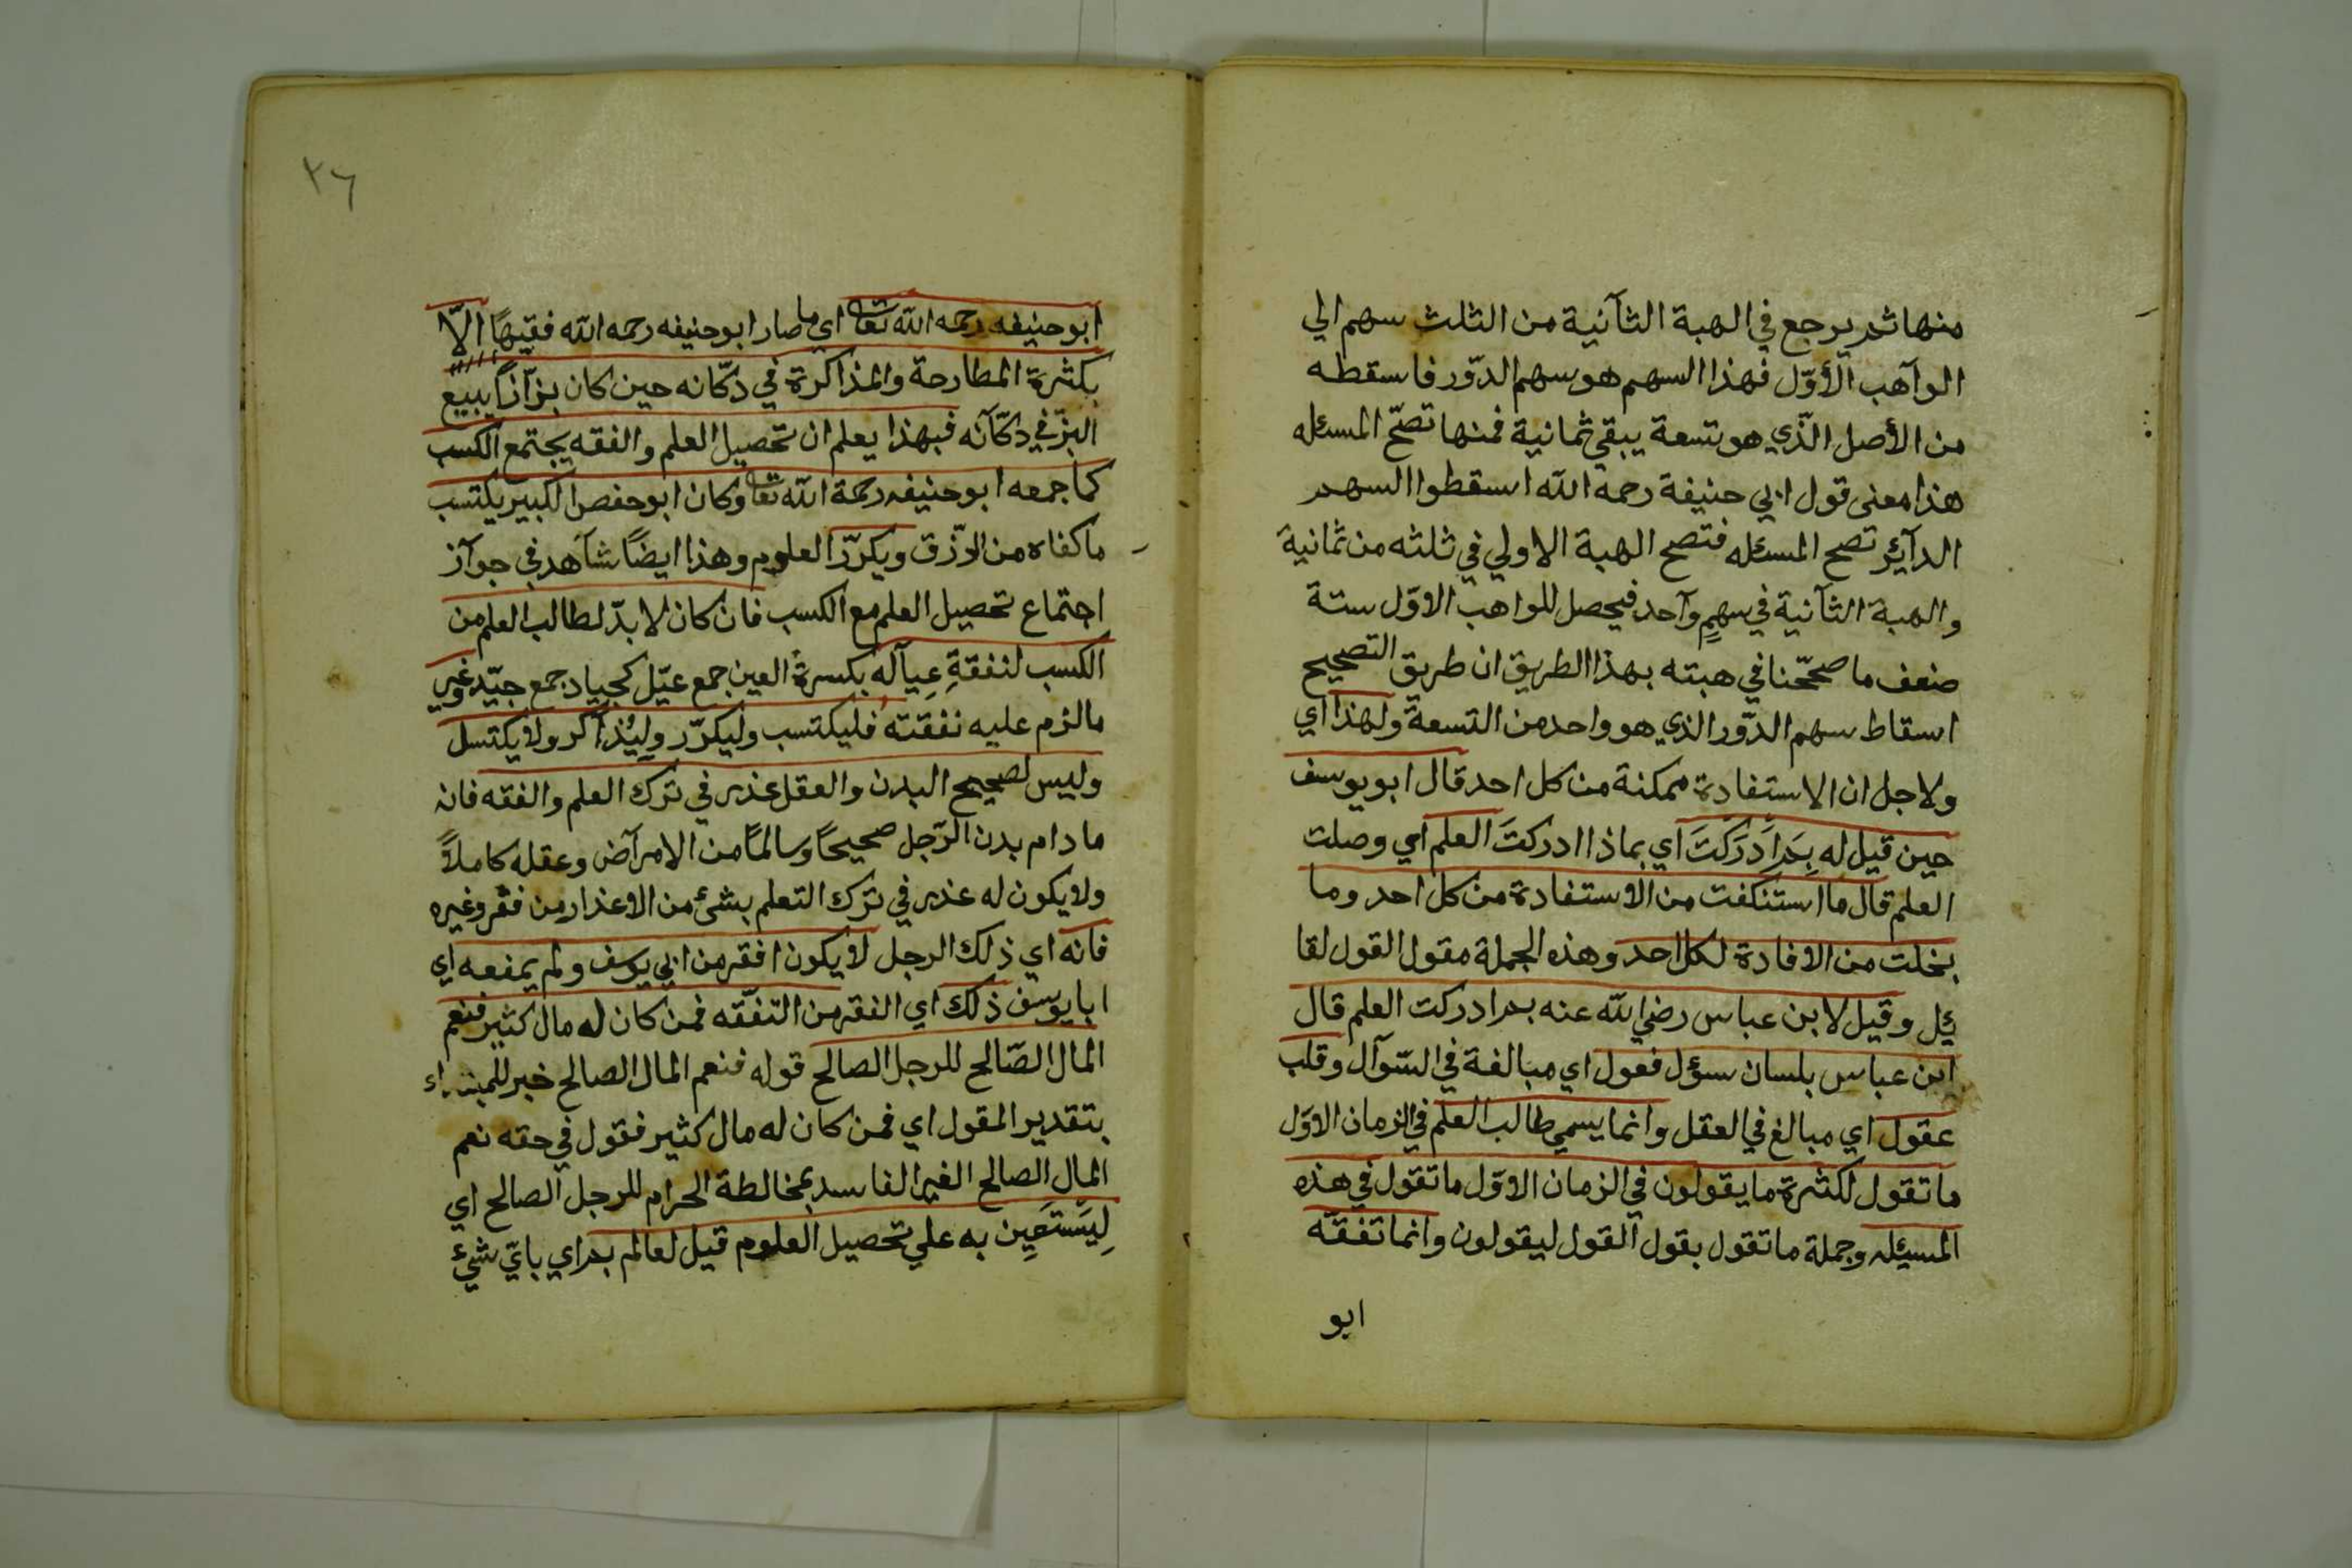 منها ثم يرجع في الهبة الثآنية من الثلث سهم الي
الوآهب الأوّل فهذا السهم هو سهم الدّور فاسقطه
من الأصل الّذي هو تسعة يبقي ثمانية فمنها تصحّ المسئله
هذا معنى قول ابي حنيفة رحمه الله اسقطوا السهم
الدآئر تصح المسئله فتصح الهبة الاولي في ثلثه من ثمانية
والهبة الثآنية في سهمٍ وآحد فيحصل للواهب الاوّل ستة
ضعف ما صححّنا في هبته بهذا الطريق ان طريق التصحيح
اسقاط سهم الدّور الذي هو واحد من التسعة ولهذا اي
ولاجل ان الاستفادة ممكنة من كل احد قال ابو يوسف
حين قيل له بِمَ اَدرَكتَ اي بماذا ادركتَ العلم اي وصلت
العلم قال ما استنكفت من الاستفادة من كل احد وما
بخلت من الافادة لكل احد وهذه الجملة مقول القول لقا
ئل وقيل لابن عباس رضي الله عنه بم ادركت العلم قال
ابن عباس بلسان سؤل فعول اي مبالغة في السّوآل وقلب
عقول اي مبالغ في العقل وانما يسمي طالب العلم في الزمان الاوّل
ما تقول لكثرة ما يقولون في الزمان الاوّل ما تقول في هذه
المسئله وجملة ما تقول بقول القول ليقولون وانما تفقّه
ابو
٢٦
ابو حنيفه رحمه الله تعا اي ما صار ابو حنيفه رحمه الله فقيهًا الّا
بكثرة المطارحة والمذاكرة في دكّانه حين كان بزّآزًا يبيع
البزّ في دكّآنه فبهذا يعلم ان تحصيل العلم والفقه يجتمع الكسب
كما جمعه ابو حنيفه رحمة الله تعا وكان ابو حفص الكبير يكتسب
ما كفاه من الرّزق ويكرّر العلوم وهذا ايضًا شآهد في جوآز
اجتماع تحصيل العلم مع الكسب فان كان لا بدّ لطالب العلم من
الكسب لنفقةِ عِيآله بكسرة العين جمع عيّل كجياد جمع جيّد وغيرِ
ما لزم عليه نفقته فليكتسب وليكرّر وليُذآكر ولا يكتسل
وليس لصحيح البدن والعقل عذر في ترك العلم والفقه فانه
ما دام بدن الرّجل صحيحًا وسالمًا من الامرآض وعقله كاملاً
ولا يكون له عذر في ترك التعلم بشئ من الاعذار من فقر وغيره
فانه اي ذلك الرجل لا يكون افقر من ابي يوسف ولم يمنعه اي
ابا يوسف ذلك اي الفقر من التفقّه فمن كان له مال كثير فنعم
المال الصّالح للرجل الصالح قوله فنعم المال الصالح خبر للمبتداء
بتقدير المقول اي فمن كان له مال كثير فقول في حقه نعم
المال الصالح الغير الفاسد بمخالطة الحرام للرجل الصالح اي
لِيَستَعِين به علي تحصيل العلوم قيل لعالم بم اي بايّ شيئ